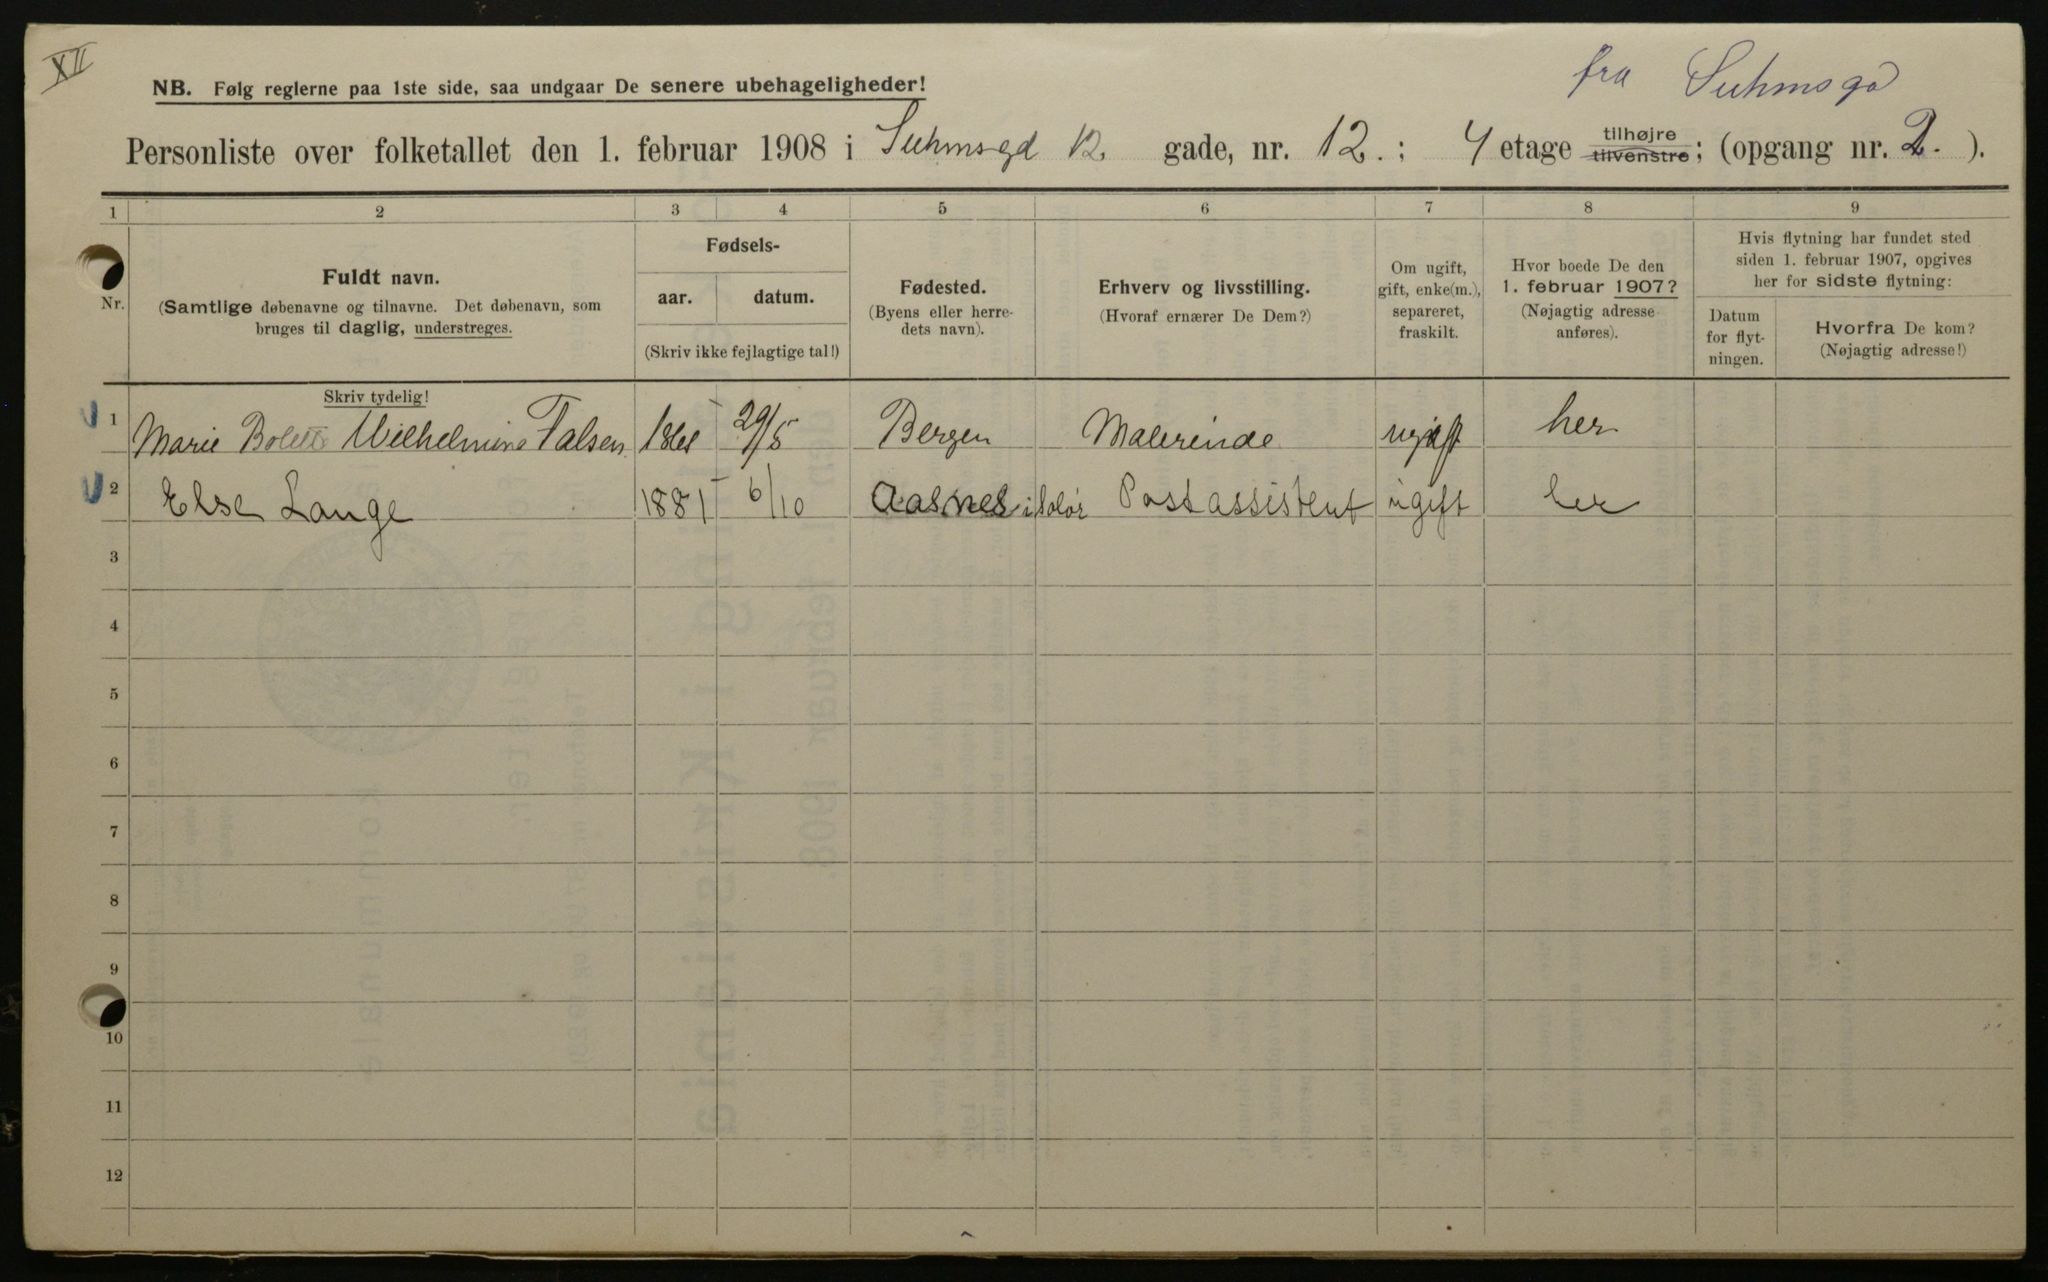 XII
fra Suhmsgd
NB. Følg reglerne paa 1ste side, saa undgaar De senere ubehageligheder!
Personliste over folketallet den 1. februar 1908 i Suhmsgd 12. gade, nr. 12.; 4 etage tilhøjre tilvenstre; (opgang nr. 2.).
1 2 3 4 5 6 7 8 9
Nr.
Fuldt navn.
(Samtlige døbenavne og tilnavne. Det døbenavn, som
bruges til daglig, understreges.
Skriv tydelig!
Fødsels-
aar. datum.
(Skriv ikke fejlagtige tal!)
Fødested.
(Byens eller herre-
dets navn).
Erhverv og livsstilling.
(Hvoraf ernærer De Dem?)
Om ugift,
gift, enke(m.),
separeret,
fraskilt.
Hvor boede De den
1. februar 1907?
(Nøjagtig adresse
anføres).
Hvis flytning har fundet sted
siden 1. februar 1907, opgives
her for sidste flytning:
Datum
for flyt-
ningen.
Hvorfra De kom?
(Nøjagtig adresse!)
1 Marie Bolette Wilhelmine Falsen 29/5 Bergen Malerinde ugift her
2 Else Lange 1881 6/10 Aasnes i Solør Postassistent ugift her
3
4
5
6
7
8
9
10
11
12